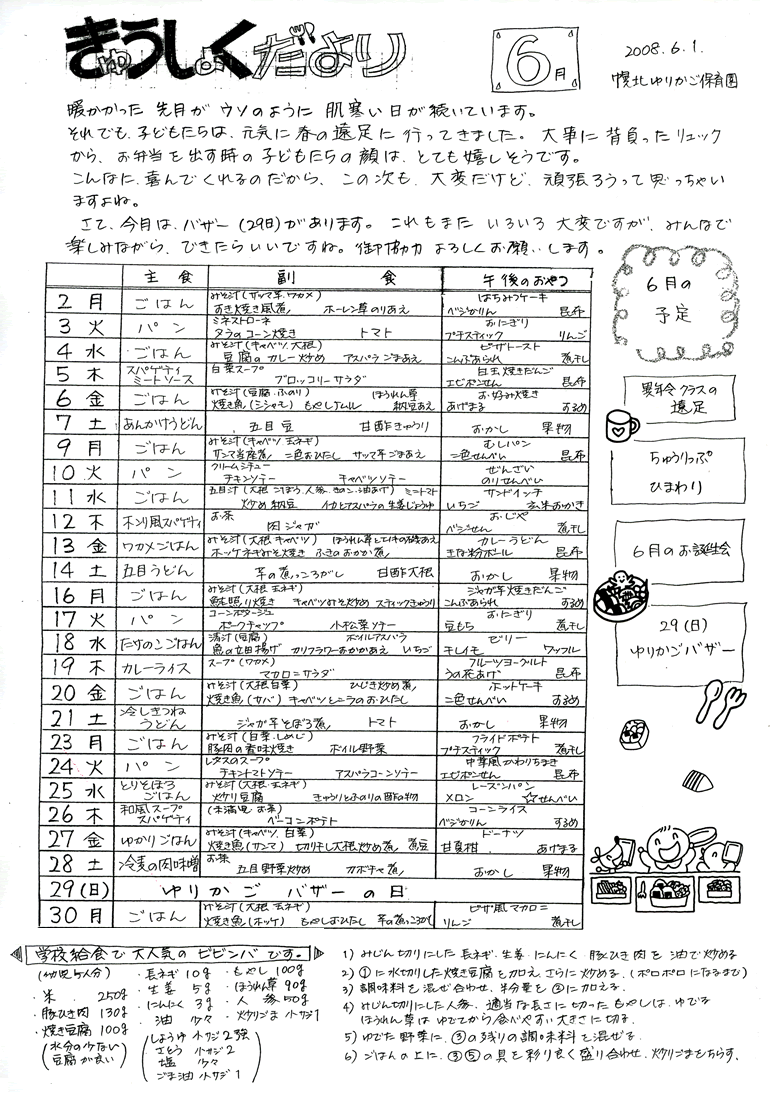 きゅうしょくだより
6月
2008.6.1.
幌北ゆりかご保育園
暖かかった 先月が ウソのように 肌寒い日が続いています。
それでも、子どもたちは、元気に春の遠足に行ってきました。大事に背負ったリュック
から、お弁当を出す時の子どもたちの顔は、とても嬉しそうです。
こんなに、喜んでくれるのだから、この次も、大変だけど、頑張ろうって思っちゃい
ますよね。
さて、今月は、バザー(29日)があります。これもまた いろいろ 大変ですが、みんなで
楽しみながら、できたらいいですね。御協力 よろしくお願いします。
主食 副食 午後のおやつ
2 月 ごはん みそ汁(サツマ芋、ワカメ) はちみつケーキ
すき焼き風煮 ホーレン草のりあえ ベジかりん 昆布
3 火 パン ミネストローネ おにぎり
タラのコーン焼き トマト プチスティック りんご
4 水 ごはん みそ汁(キャベツ、大根) ピザトースト
豆腐のカレー炒め アスパラごまあえ こんぶあられ 煮干し
5 木 スパゲティミートソース 白菜スープ 白玉焼きだんご
ブロッコリーサラダ エビポンせん 昆布
6 金 ごはん みそ汁(豆腐・ふのり) ほうれん草納豆あえ お好み焼き
焼き魚(シシャモ) もやしナムル あげまる するめ
7 土 あんかけうどん 五目豆 甘酢きゅうり おかし 果物
9 月 ごはん みそ汁(キャベツ 玉ネギ) むしパン
サンマ当座煮 二色おひたし サツマ芋ごまあえ 二色せんべい 昆布
10 火 パン クリームシチュー ぜんざい
チキンソテー キャベツソテー のりせんべい
11 水 ごはん 五目汁(大根 ごぼう、人参、きのこ、油あげ) ミニトマト サンドイッチ
炒め納豆 イカとアスパラの生姜じょうゆ いちご 玄米おかき
12 木 ホンリ風スパゲティ お茶 おじや
肉ジャガ ベジせん 煮干し
13 金 ワカメごはん みそ汁(大根 キャベツ) カレーうどん
ホッケネギみそ焼き ふきのおかか煮 きな粉ボール 昆布
14 土 五目うどん 芋の煮っころがし 甘酢大根 おかし 果物
16 月 ごはん みそ汁(大根 玉ネギ) ジャガ芋焼きだんご
鮭照り焼き キャベツみそ炒め スティックきゅうり こんぶあられ するめ
17 火 パン コーンポタージュ おにぎり
ポークチャップ 小松菜ソテー 豆もち 煮干し
18 水 たけのこごはん 清汁(豆腐) ボイルアスパラ ゼリー
魚の立田揚げ カリフラワーおかかあえ いちご 干しイモ ワッフル
19 木 カレーライス スープ(ワカメ) フルーツヨーグルト
マカロニサラダ うの花あげ 昆布
20 金 ごはん みそ汁(大根 白菜) ひじき炒め煮 ホットケーキ
焼き魚(サバ) キャベツとニラのおひたし 二色せんべい するめ
21 土 冷しきつねうどん ジャガ芋そぼろ煮 トマト おかし 果物
23 月 ごはん みそ汁(白菜、しめじ) フライドポテト
豚肉の香味焼き ボイル野菜 プチスティック 煮干し
24 火 パン レタスのスープ 中華風かわりちまき
チキントマトソテー アスパラコーンソテー エビポンせん 昆布
25 水 とりそぼろごはん みそ汁(大根・玉ネギ) レーズンパン
炒り豆腐 きゅうりとふのりの酢の物 メロン ☆せんべい
26 木 和風スープスパゲティ (未満児 お茶) コーンライス
ベーコンポテト ベジかりん するめ
27 金 ゆかりごはん みそ汁(キャベツ、白菜) ドーナツ
焼き魚(サンマ) 切り干し大根炒め煮 煮豆 甘夏柑 あげまる
28 土 冷麦の肉味噌 お茶
五目野菜炒め カボチャ煮 おかし 果物
29(日) ゆりかご バザー の日
30 月 ごはん みそ汁(大根 玉ネギ) ピザ風マカロニ
焼き魚(ホッケ) もやしおひたし 芋の煮っころがし りんご 煮干し
6月の
予定
異年令クラスの
遠足
ちゅうりっぷ
ひまわり
6月のお誕生会
29(日)
ゆりかごバザー
学校給食で大人気の ビビンバ です。
(幼児5人分)
・米 250g
・豚ひき肉 130g
・焼き豆腐 100g
(水分の少ない
豆腐が良い)
・長ネギ 10g
・生姜 5g
・にんにく 3g
・油 少々
・もやし 100g
・ほうれん草 90g
・人参 50g
・炒りごま 小サジ1
(しょうゆ 小サジ2強
さとう 小サジ2
塩 少々
ごま油 小サジ1)
1) みじん切りにした長ネギ・生姜・にんにく、豚ひき肉を 油で炒める
2) ①に水切りした焼き豆腐を加え、さらに炒める。(ポロポロになるまで)
3) 調味料を混ぜ合わせ、半分量を②に加える。
4) みじん切りにした人参、適当な長さに切ったもやしは、ゆでる
ほうれん草は ゆでてから食べやすい大きさに切る。
5) ゆでた野菜に、③の残りの調味料を混ぜる。
6) ごはんの上に、③⑤の具を彩り良く盛り合わせ、炒りごまをちらす。